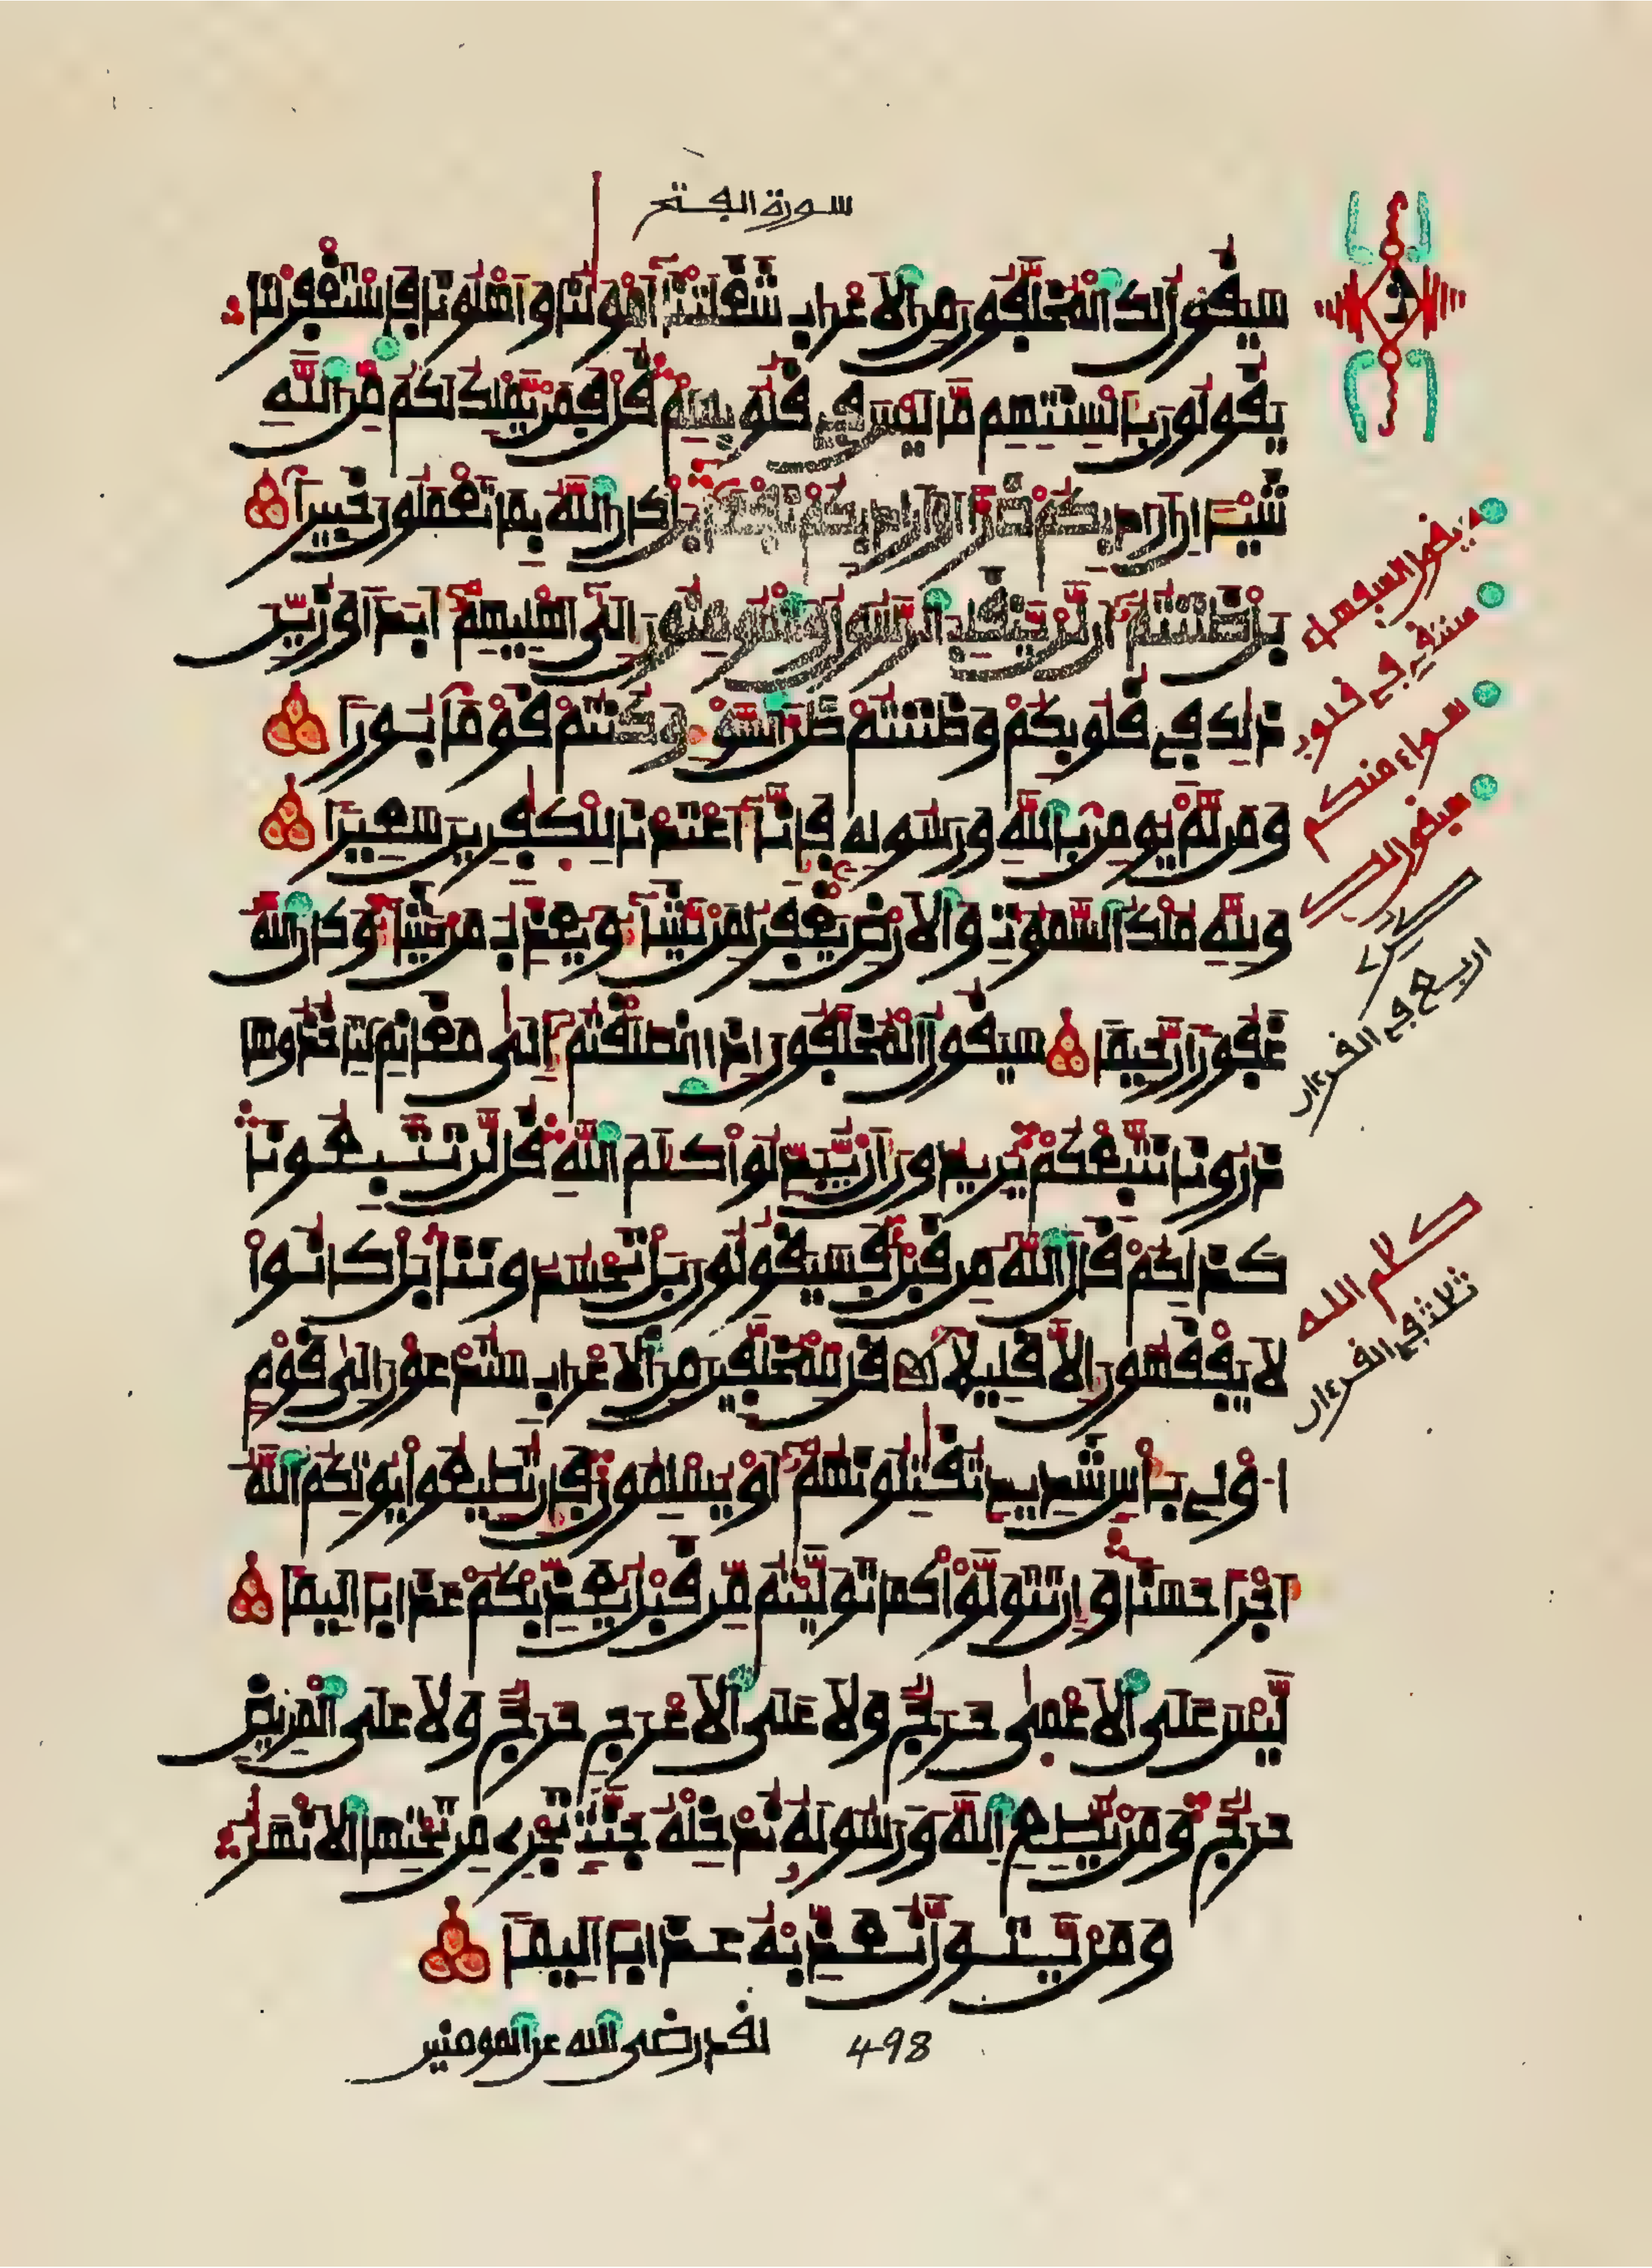 سورة الفتح
سَيَقُولُ لَكَ اَلْمُخَلَّفُونَ مِنَ اَلَاعْرَابِ شَغَلَتْنَا أَمْوَٰلُنَا وَأَهْلُونَا فَاسْتَغْفِرْ لَنَا
يَقُولُونَ بِأَلْسِنَتِهِم مَّا لَيْسَ فِي قُلُوبِهِمْ قُلْ فَمَنْ يَّمْلِكُ لَكُم مِّنَ اَللَّهِ
شَيْـًٔا اِنَ اَرَادَ بِكُمْ ضَرًّا اَوَ اَرَادَ بِكُمْ نَفْعًا بَلْ كَانَ اَللَّهُ بِمَا تَعْمَلُونَ خَبِيرًا
بَلْ ظَنَنتُمُ أَن لَّنْ يَّنقَلِبَ اَلرَّسُولُ وَالْمُومِنُونَ إِلَىٰ أَهْلِيهِمُ أَبَدًا وَزُيِّنَ
ذَٰلِكَ فِي قُلُوبِكُمْ وَظَنَنتُمْ ظَنَّ اَلسَّوْءِ وَكُنتُمْ قَوْمًا بُورًا
وَمَن لَّمْ يُومِنۢ بِاللَّهِ وَرَسُولِهِ فَإِنَّا أَعْتَدْنَا لِلْكَٰفِرِينَ سَعِيرًا
وَلِلَّهِ مُلْكُ اُلسَّمَٰوَٰتِ وَالَارْضِ يَغْفِرُ لِمَنْ يَّشَاءُ وَيُعَذِّبُ مَنْ يَّشَاءُ وَكَانَ اَللَّهُ
غَفُورًا رَّحِيمًا سَيَقُولُ اُلْمُخَلَّفُونَ إِذَا اَنطَلَقْتُمُ إِلَىٰ مَغَانِمَ لِتَاخُذُوهَا
ذَرُونَا نَتَّبِعْكُمْ يُرِيدُونَ أَنْ يُّبَدِّلُوا كَلَٰمَ اَللَّهِ قُل لَّن تَتَّبِعُونَا
كَذَٰلِكُمْ قَالَ اَللَّهُ مِن قَبْلُ فَسَيَقُولُونَ بَلْ تَحْسُدُونَنَا بَلْ كَانُوا
لَا يَفْقَهُونَ إِلَّا قَلِيلًا قُل لِّلْمُخَلَّفِينَ مِنَ اَلَاعْرَابِ سَتُدْعَوْنَ إِلَىٰ قَوْمٍ
اُوْلِي بَأْسٍ شَدِيدٍ تُقَٰتِلُونَهُمُ أَوْ يُسْلِمُونَ فَإِن تُطِيعُوا يُوتِكُمُ اُللَّهُ
أَجْرًا حَسَنًا وَإِن تَتَوَلَّوْا كَمَا تَوَلَّيْتُم مِّن قَبْلُ يُعَذِّبْكُمْ عَذَابًا اَلِيمًا
لَّيْسَ عَلَى اَلَاعْمَىٰ حَرَجٌ وَلَا عَلَى اَلَاعْرَجِ حَرَجٌ وَلَا عَلَى اَلْمَرِيضِ
حَرَجٌ وَمَنْ يُّطِعِ اِللَّهَ وَرَسُولَهُ نُدْخِلْهُ جَنَّٰتٍ تَجْرِي مِن تَحْتِهَا اَلَانْهَٰرُ
وَمَنْ يَّتَوَلَّ نُعَذِّبْهُ عَذَابًا اَلِيمًا
498 لقد رضى الله عن المومنين
يقول السفهاء
ستلقي في قلوب
سواء منكم
سيقول لك
اربع في القرءان
كلام الله
ثلاث في القرءان